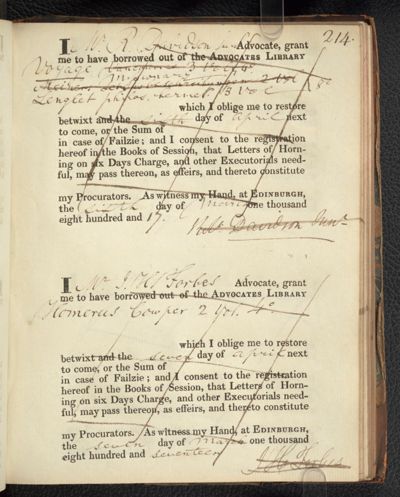 214.
I Mr R. Davidson Junr Advocate, grant
me to have borrowed out of the ADVOCATES LIBRARY
Voyage 3 Vol 8o
2 Vol
Lenglet 3 Vol 8o
which I oblige me to restore
betwixt and the sixth day of April next
to come, or the Sum of
in case of Failzie; and I consent to the registration
hereof in the Books of Session, that Letters of Horn-
ing on six Days Charge, and other Executorials need-
ful, may pass thereon, as effeirs, and thereto constitute
my Procurators. As witness my Hand, at EDINBURGH,
the sixth day of March one thousand
eight hundred and 17.
Robt Davidson Junr
I Mr J. H. Forbes Advocate, grant
me to have borrowed out of the ADVOCATES LIBRARY
Homerus Cowper 2 Vol. 4o
which I oblige me to restore
betwixt and the seven day of April next
to come, or the Sum of
in case of Failzie; and I consent to the registration
hereof in the Books of Session, that Letters of Horn-
ing on six Days Charge, and other Executorials need-
ful, may pass thereon, as effeirs, and thereto constitute
my Procurators. As witness my Hand, at EDINBURGH,
the seven day of March one thousand
eight hundred and seventeen
J. H. Forbes